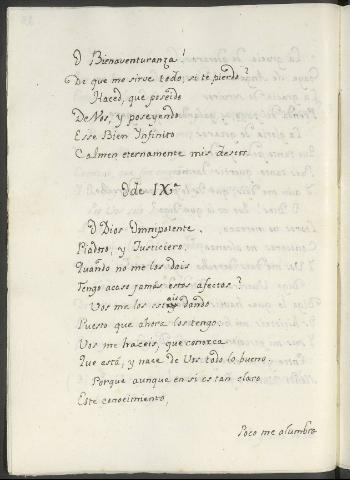 O Bienaventuranza!
De que me sirve todo, si te pierdo?
Haced, que poseido
De Nos, y poseyendo
Esse Bien Infinito
Calmen eternamente mis deseos.
Ode IX.ª
O Dios Omnipotente,
Piadoso, y Justiciero,
Quando no me los dais
Tengo acaso jamàs estos afectos?
Vos me los estais dando
Puesto que ahora los tengo:
Vos me haceis, que conozca
Que està, y nace de Vos todo lo bueno.
Porque aunque en si es tan claro
Este conocimiento,
Poco me alumbra